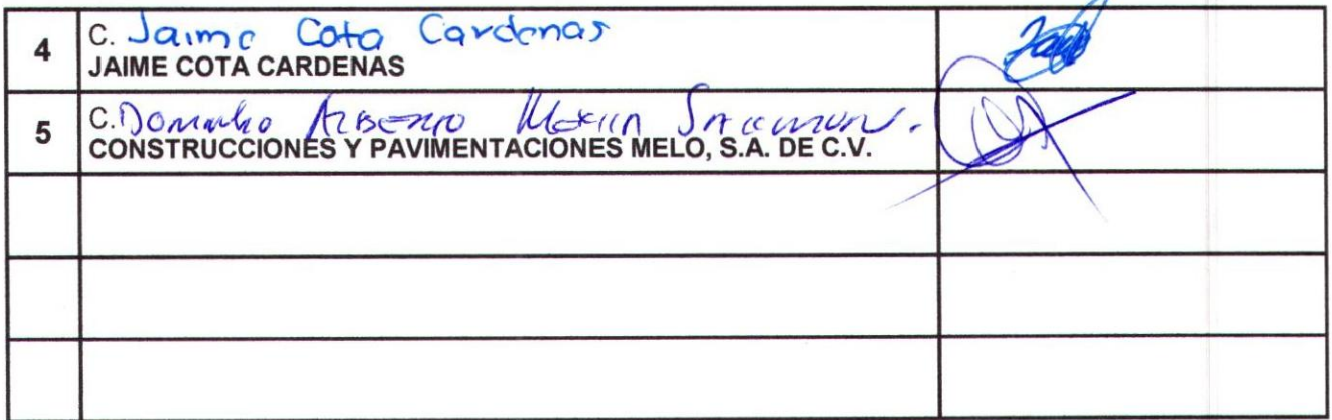 4
C. Jaime Cota Cardenas
JAIME COTA CARDENAS
5
C. Alberto
CONSTRUCCIONES Y PAVIMENTACIONES MELO, S.A. DE C.V.